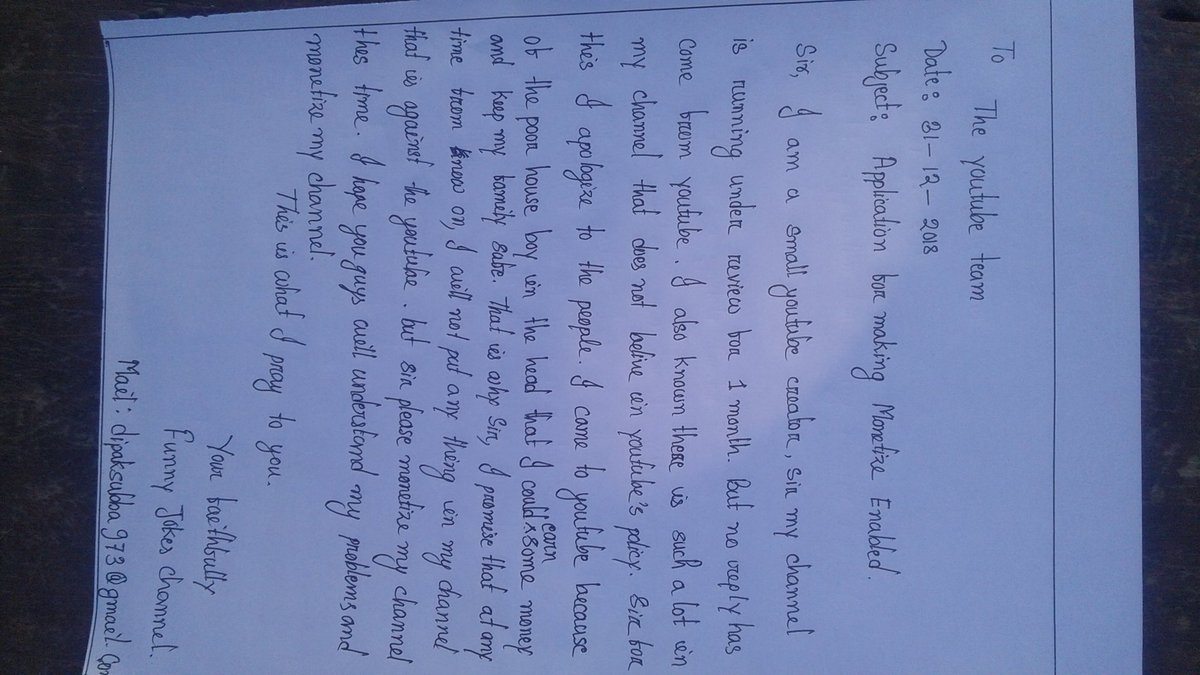 To The youtube team
Date: 31-12-2018
Subject: Application for making Monetize Enabled.
Sir, I am a small youtube creator, sir my channel
is running under review for 1 month. But no reply has
come from youtube. I also known there is such a lot in
my channel that does not belive in youtube's policy. Sir for
this I apologize to the people. I came to youtube because
of the poor house boy in the head that I could earn some money
and keep my family safe. That is why Sir, I promise that at my
time from know on, I will not put any thing in my channel
that is against the youtube. but sir please monetize my channel
this time. I hope you guys will understand my problems and
monetize my channel.
This is what I pray to you.
Your faithfully
Funny Jokes channel.
Mail: dipaksubba973@gmail.com